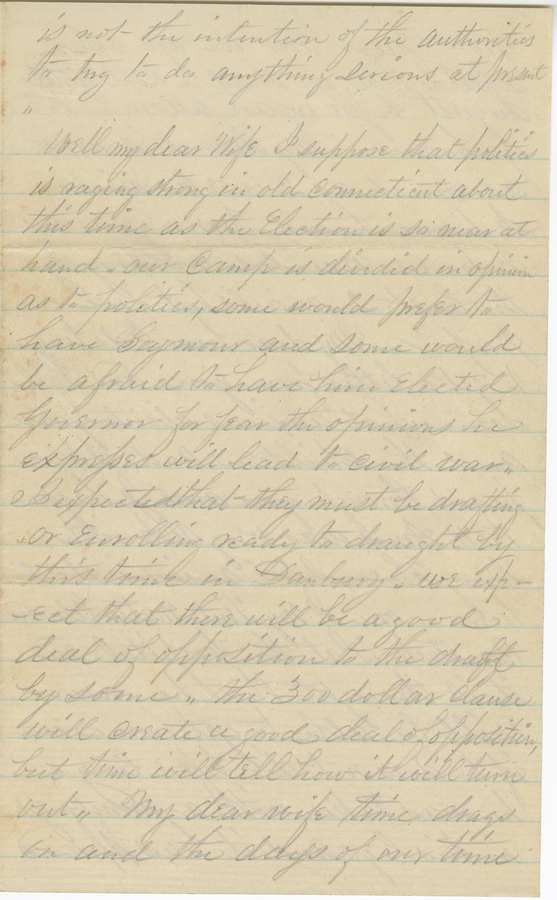 is not the intention of the authorities
to try to do anything serious at present
"
Well my dear Wife I suppose that politics
is raging strong in old Connecticut about
this time as the Election is so near at
hand. our Camp is divided in opinion
as to politics, some would prefer to
have Seymour and some would
be afraid to have him Elected
Governor for fear the opinions he
expresses will lead to civil war,,
I expected that they must be drafting
or Enrolling ready to draught by
this time in Danbury. we exp-
-ect that there will be a good
deal of opposition to the draft
by some ,, the 300 dollar clause
will create a good deal of opposition,
but time will tell how it will turn
out,, My dear wife time drags
on and the days of our time